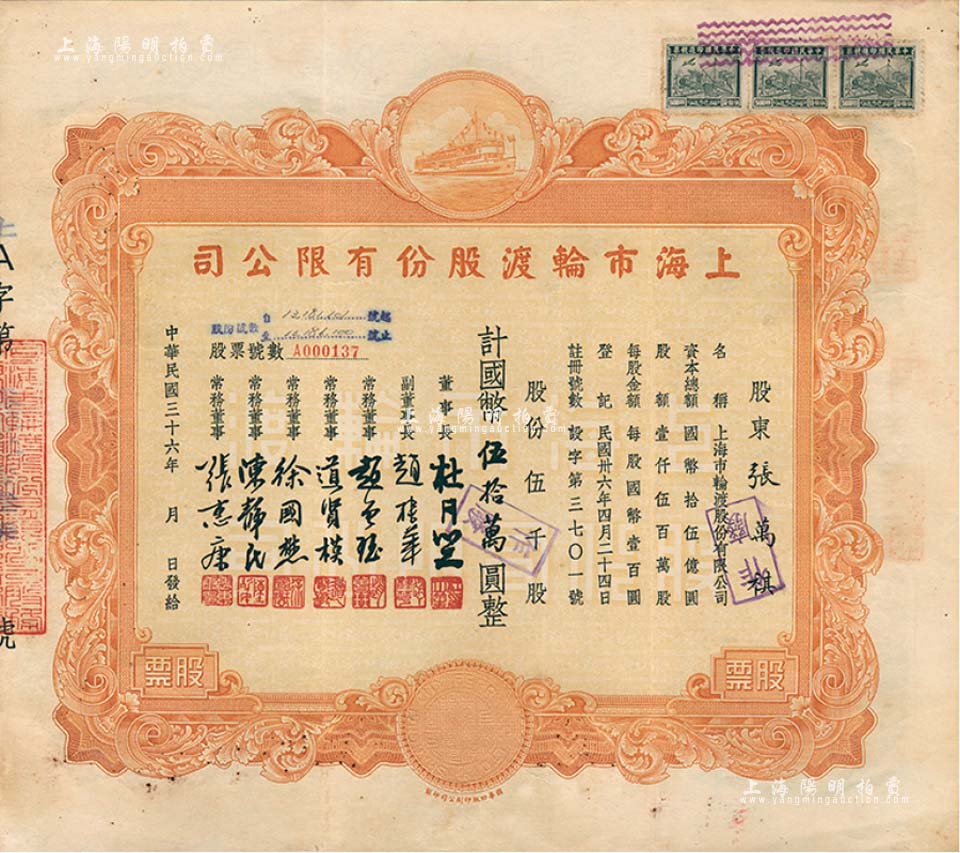 上海陽明拍賣
www.yangmingauction.com
上海市輪渡股份有限公司
股東張萬祺
名稱 上海市輪渡股份有限公司
資本總額 國幣拾伍億圓
股額 壹仟伍百萬股
每股金額 每股國幣壹百圓
登記 民國卅六年四月二十四日
註冊號數 設字第三七〇一號
股份伍千股
計國幣伍拾萬圓整
董事長 杜月笙
副董事長 趙棣華
常務董事
常務董事
常務董事 徐國懋
常務董事 陳靜民
常務董事 張惠康
起號
自
止號
至
股票號數 A000137
中華民國三十六年 月 日發給
作廢
作廢
A字第
號
股票
股票
上海陽明拍賣
www.yangmingauction.com
上海陽明拍賣
www.yangmingauction.com